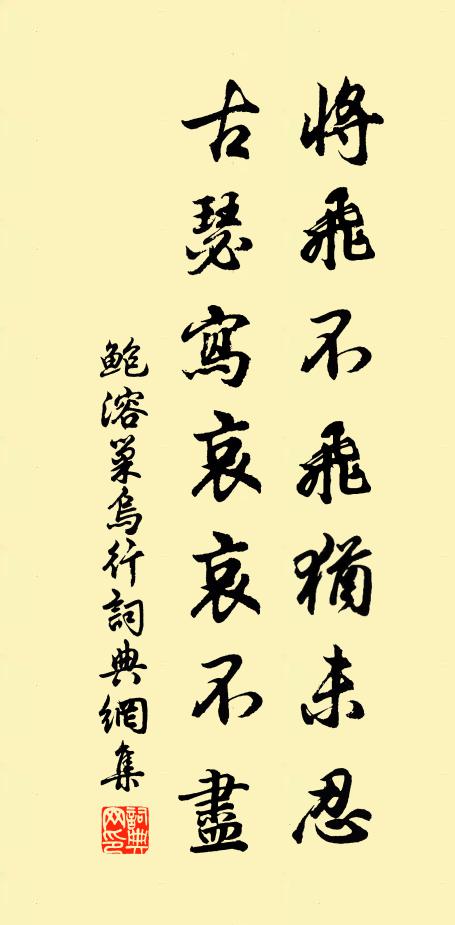 將飛不飛猶未忍
古瑟寫哀哀不盡
鮑溶巢烏行詞典網集
詞典網印